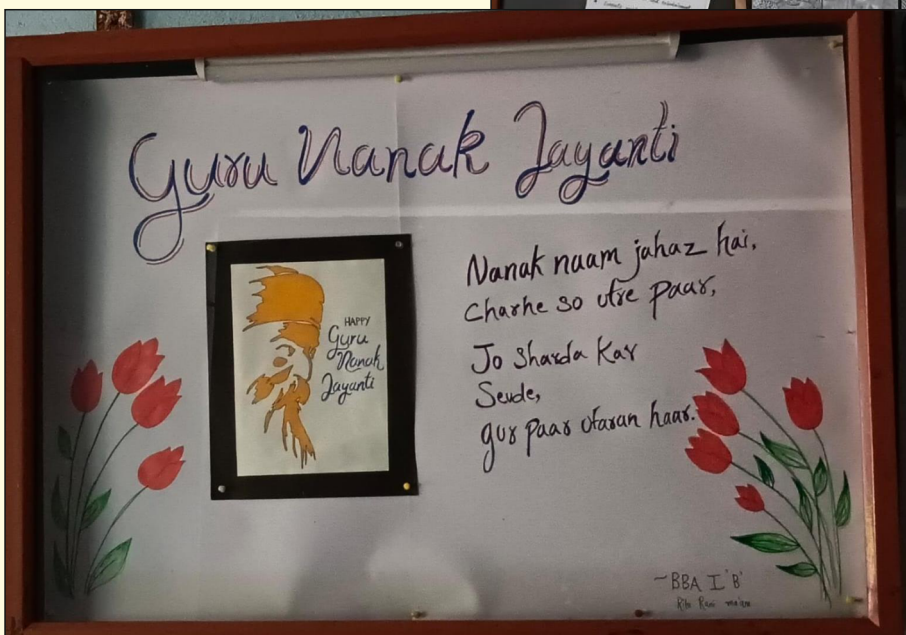 Guru Nanak Jayanti
HAPPY
Guru
Nanak
Jayanti
Nanak naam jahaz hai,
Charhe so utre paar,
Jo Sharda Kar
Sevde,
gur paar utaran haar.
~BBA I 'B'
Ravi ma'am